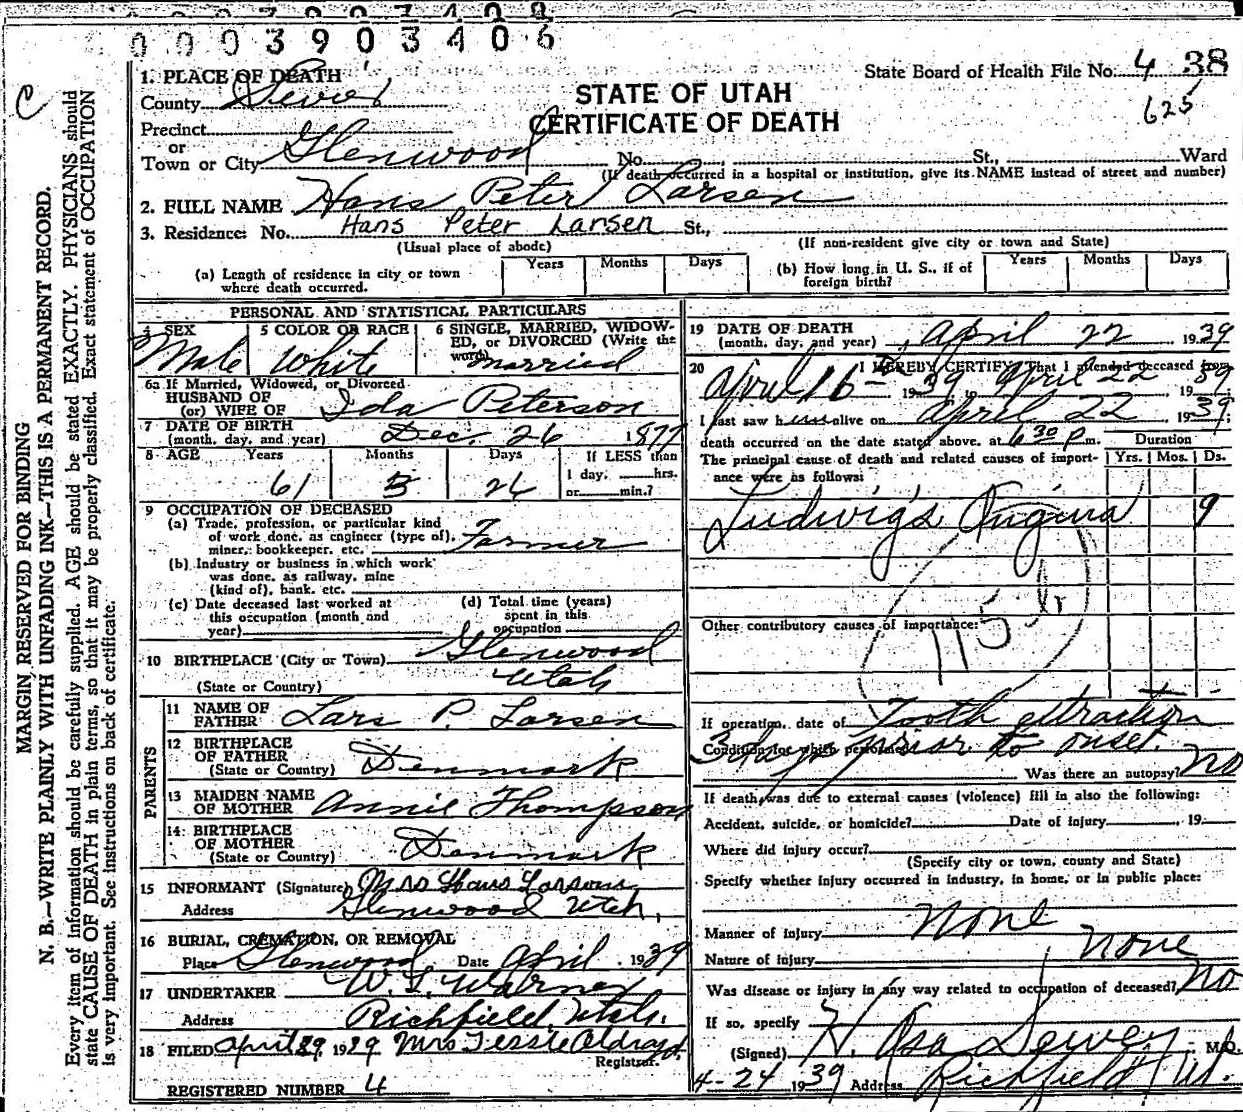 0003903406
C
MARGIN RESERVED FOR BINDING
N. B.—WRITE PLAINLY WITH UNFADING INK—THIS IS A PERMANENT RECORD.
Every item of information should be carefully supplied. AGE should be stated EXACTLY. PHYSICIANS should
state CAUSE OF DEATH in plain terms, so that it may be properly classified. Exact statement of OCCUPATION
is very important. See instructions on back of certificate.
State Board of Health File No. 4 38
625
STATE OF UTAH
CERTIFICATE OF DEATH
1. PLACE OF DEATH
County Sevier
Precinct
or
Town or City Glenwood No. St., Ward
(If death occurred in a hospital or institution, give its NAME instead of street and number)
2. FULL NAME Hans Peter Larsen
3. Residence: No. Hans Peter Larsen St.,
(Usual place of abode) (If non-resident give city or town and State)
(a) Length of residence in city or town where death occurred. Years Months Days
(b) How long in U. S., if of foreign birth? Years Months Days
PERSONAL AND STATISTICAL PARTICULARS
4 SEX Male
5 COLOR OR RACE White
6 SINGLE, MARRIED, WIDOWED, or DIVORCED (Write the word) married
6a If Married, Widowed, or Divorced
HUSBAND OF
(or) WIFE OF Ida Peterson
7 DATE OF BIRTH
(month, day, and year) Dec. 26 1877
8 AGE Years Months Days If LESS than
1 day, hrs.
or min.?
61 3 26
9 OCCUPATION OF DECEASED
(a) Trade, profession, or particular kind
of work done, as engineer (type of),
miner, bookkeeper, etc. Farmer
(b) Industry or business in which work
was done, as railway, mine
(kind of), bank, etc.
(c) Date deceased last worked at
this occupation (month and
year)
(d) Total time (years)
spent in this
occupation
10 BIRTHPLACE (City or Town) Glenwood
(State or Country) Utah
PARENTS
11 NAME OF
FATHER Lars P. Larsen
12 BIRTHPLACE
OF FATHER
(State or Country) Denmark
13 MAIDEN NAME
OF MOTHER Annie Thompson
14 BIRTHPLACE
OF MOTHER
(State or Country) Denmark
15 INFORMANT (Signature) Mrs Hans Larsons
Address Glenwood Utah.
16 BURIAL, CREMATION, OR REMOVAL
Place Glenwood Date April 1939
17 UNDERTAKER W. L. Warner
Address Richfield, Utah.
18 FILED April 29 1939 Mrs Tessie Oldroyd
Registrar.
REGISTERED NUMBER 4
19 DATE OF DEATH
(month, day, and year) April 22 1939
20 I HEREBY CERTIFY, That I attended deceased from
April 16- 1939 April 22 1939
I last saw him alive on April 22 1939;
death occurred on the date stated above, at 6 30 p.m. Duration
The principal cause of death and related causes of importance were as follows: Yrs. Mos. Ds.
Ludwig's Angina 9
115 b
Other contributory causes of importance:
If operation, date of Tooth extraction
Condition for which performed 3 days prior to onset.
Was there an autopsy? No
If death was due to external causes (violence) fill in also the following:
Accident, suicide, or homicide? Date of injury 19
Where did injury occur?
(Specify city or town, county and State)
Specify whether injury occurred in industry, in home, or in public place:
Manner of injury None
Nature of injury None
Was disease or injury in any way related to occupation of deceased? No
If so, specify
(Signed) H. Asa Dewey M.D.
4-24 1939 Address Richfield Ut.